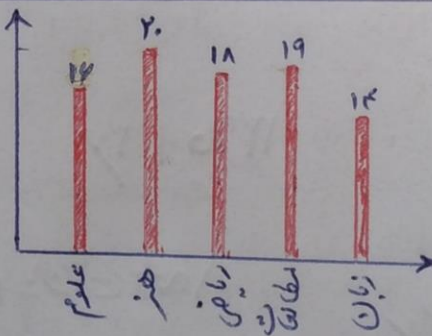 ۲۰
۱۹
۱۸
علوم
هنر
ریاضی
مطالعات
زبان